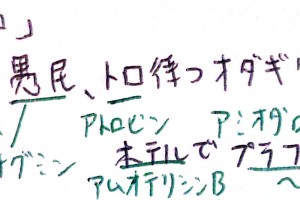 」
愚民、トロ待つオダギ
アトロピン アミオダロ
グミン
ホテルで プラフ
アムホテリシンB